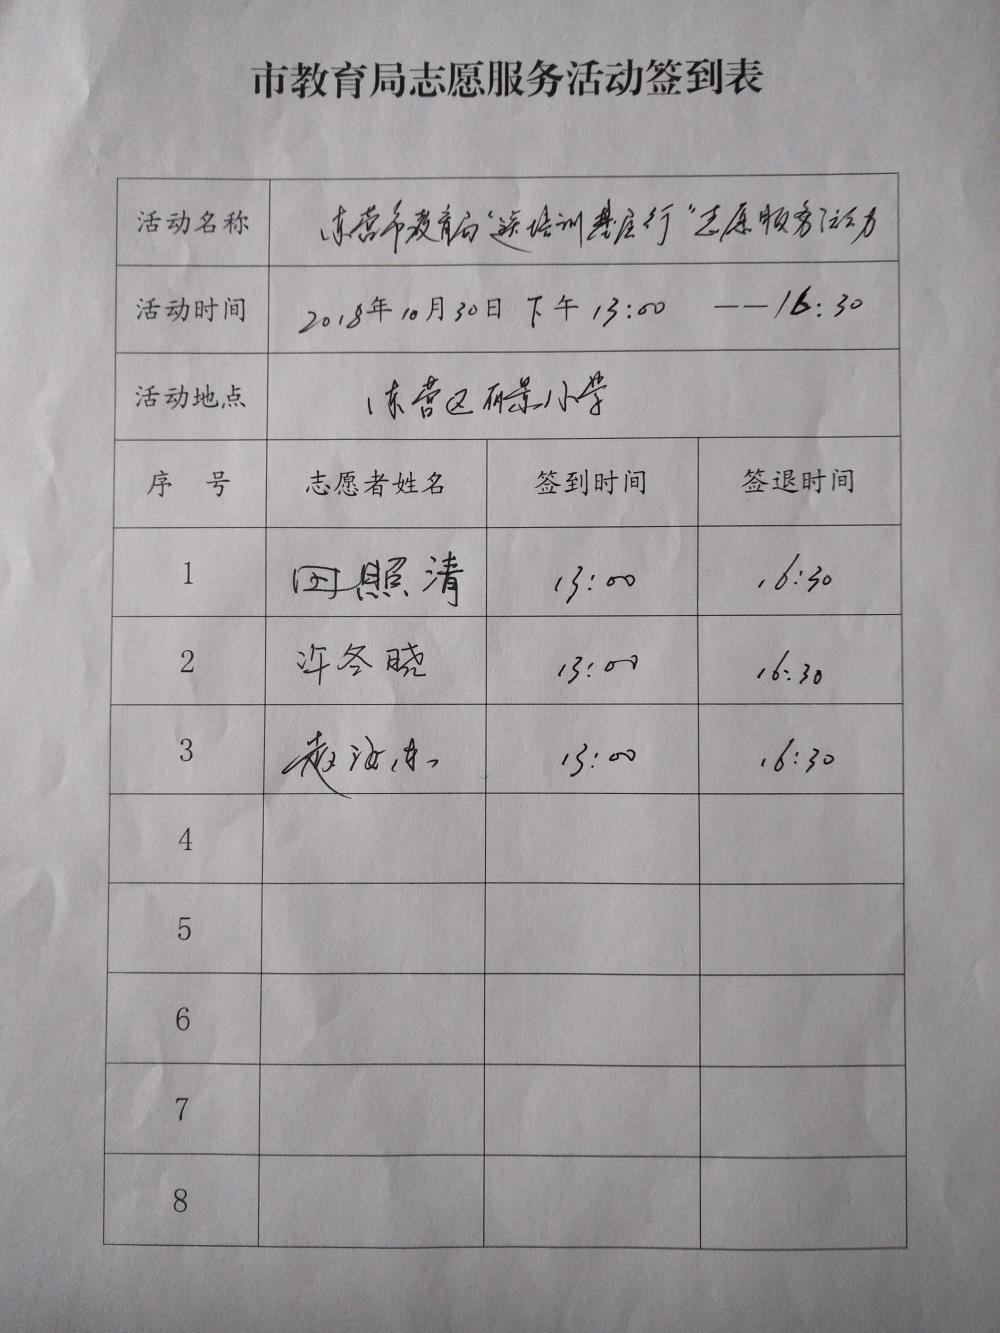 市教育局志愿服务活动签到表
活动名称 东营市教育局“送培训基层行”志愿服务活动
活动时间 2018年10月30日 下午 13:00 ——16:30
活动地点 东营区丽景小学
序 号 志愿者姓名 签到时间 签退时间
1 田照清 13:00 16:30
2 许冬晓 13:00 16:30
3 赵海东 13:00 16:30
4
5
6
7
8